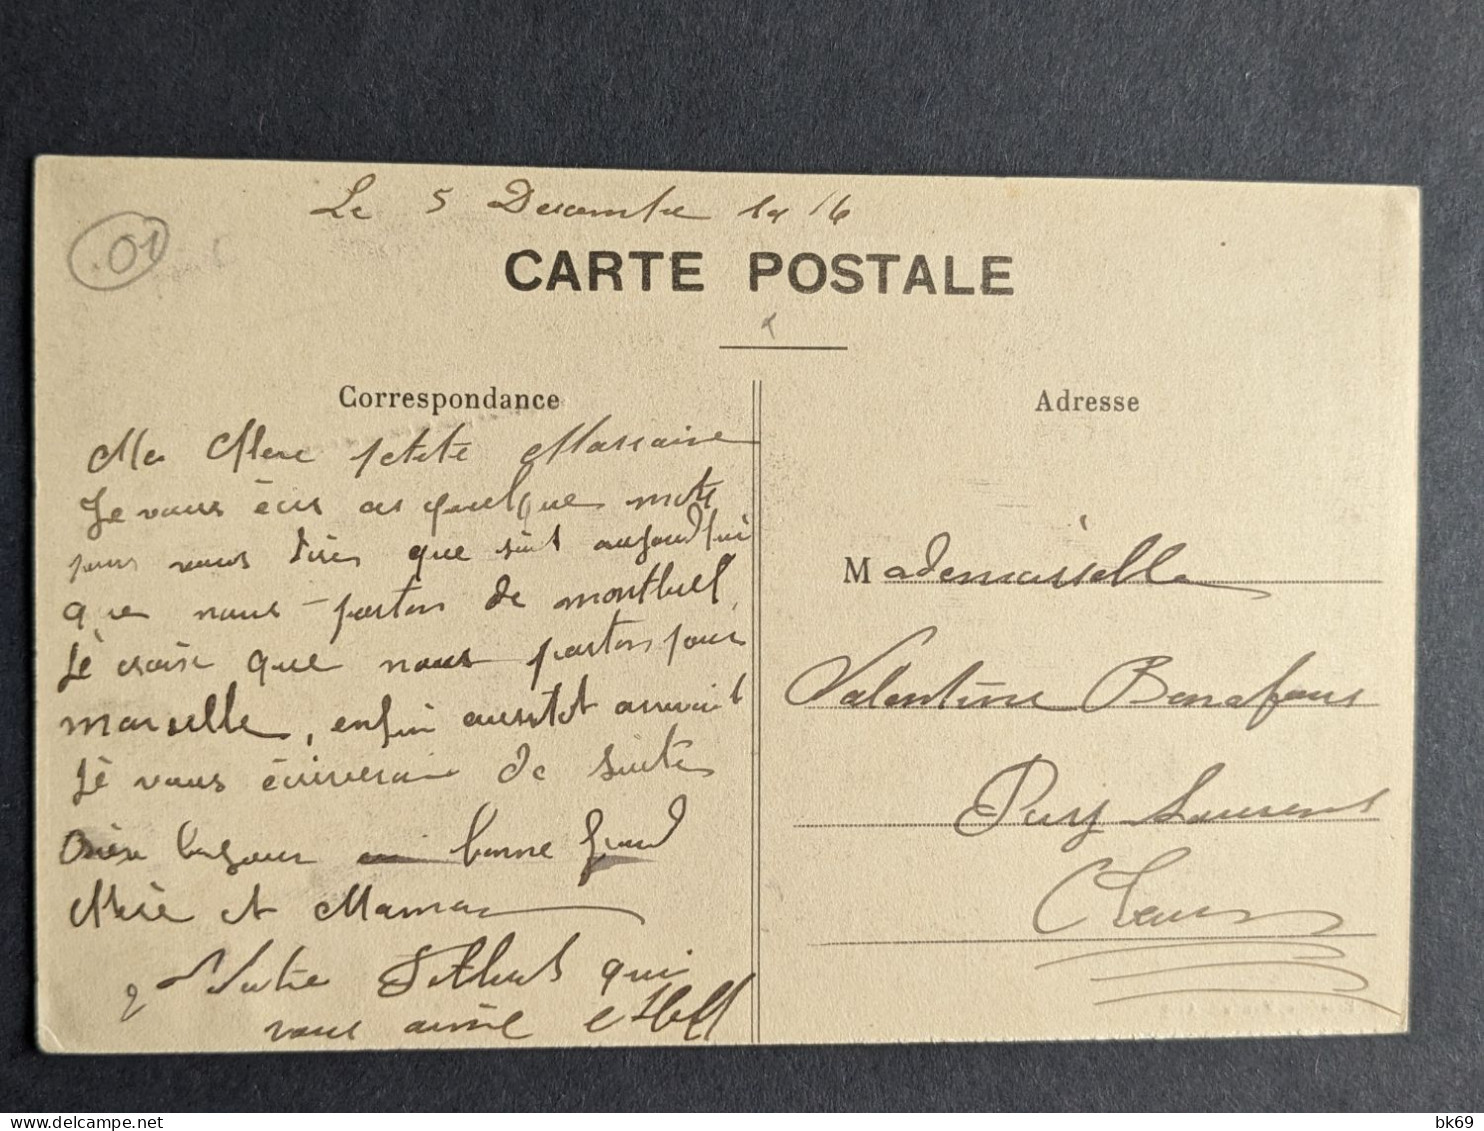 Le 5 Decembre 1916
01
CARTE POSTALE
Correspondance
Adresse
Ma Chere petite Marraine
Je vous écris ces quelque mots
pour vous dire que c'est aujourd'hui
que nous partons de montluel
Je crois que nous partons pour
marseille, enfin aussitot arrivait
Je vous écriverai de suite
bonjour a bonne Grand
Mère et Maman
Votre Filleul qui
vous aime
Mademoiselle
Valentine Bonafous
Puy Laurens
Tarn
bk69